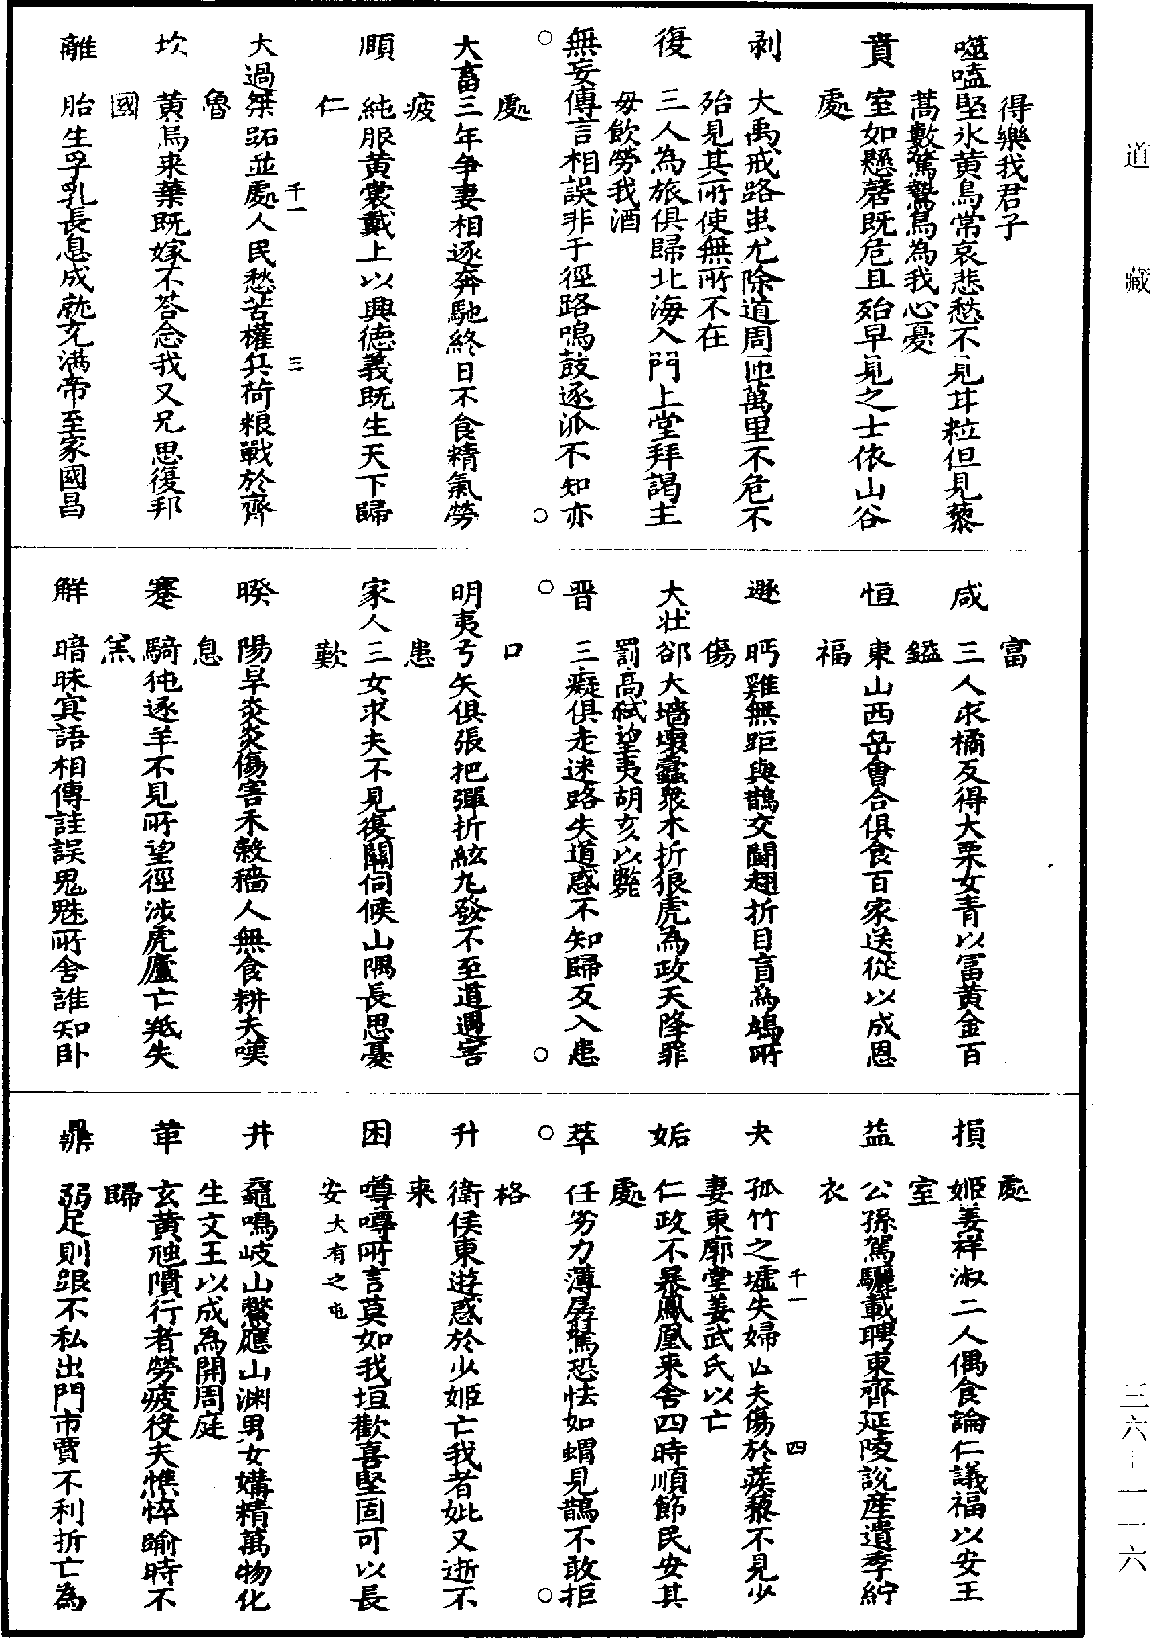 道藏
得樂我君子
噬嗑堅氷黃鳥常哀悲愁不見甘粒但見藜
蒿數驚鷙鳥為我心憂
賁　室如懸磬既危且殆早見之士依山谷
處
剥　大禹戒路蚩尤除道周匝萬里不危不
殆見其所使無所不在
復　三人為旅俱歸北海入門上堂拜謁主
毋飲勞我酒
無妄傳言相誤非于徑路鳴鼓逐狐不知亦
處
大畜三年争妻相逐奔馳終日不食精氣勞
疲
頤　純服黃裳戴上以興德義既生天下歸
仁
大過桀跖並處人民愁苦權兵荷粮戰於齊
千一　三
魯
坎　黃鳥来葉既嫁不荅念我又兄思復邦
國
離　胎生孚乳長息成就充滿帝至家國昌
富
咸　三人求橘反得大栗女青以富黃金百
鎰
恒　東山西岳會合俱食百家送從以成恩
福
遯　眄雞無距與鵲交鬬翅折目盲為鳩所
傷
大壯郤大墻壞蠹衆木折狼虎為政天降罪
罰高弒望夷胡亥以斃
晋　三癡俱走迷路失道惑不知歸反入患
口
明夷弓矢俱張把彈折絃丸發不至道遇害
患
家人三女求夫不見復關伺候山隅長思憂
歎
睽　陽旱炎炎傷害禾穀穡人無食耕夫嘆
息
蹇　騎㹠逐羊不見所望徑涉虎廬亡羝失
羔
解　暗昧寘語相傳詿誤鬼魅所舍誰知卧
處
損　姬姜祥淑二人偶食論仁議福以安王
室
益　公孫駕驪載聘東齊延陵說産遺季紵
衣
夬　孤竹之墟失婦亡夫傷於蒺藜不見少
千一　四
妻東廓堂姜武氏以亡
姤　仁政不暴鳳凰来舍四時順節民安其
處
萃　任劣力薄孱駑恐怯如蝟見鵲不敢拒
格
升　衛侯東遊惑於少姬亡我考妣又逝不
来
困　噂噂所言莫如我垣歡喜堅固可以長
安大有之屯
井　黿鳴岐山鱉應山淵男女媾精萬物化
生文王以成為開周庭
革　玄黃虺隤行者勞疲役夫憔悴踰時不
歸
鼎　弱足則跟不私出門市賈不利折亡為
三六-一一六